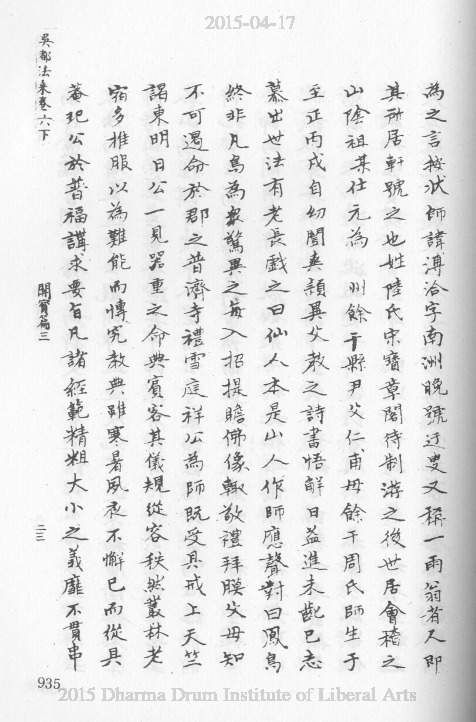 2015-04-17
為之言按狀師諱溥洽字南洲晚號迂叟又稱一雨翁者又即
其所居軒號之也姓陸氏宋寶章閣待制游之後世居會稽之
山陰祖某仕元為 州餘干縣尹父仁甫母餘干周氏師生于
至正丙戌自幼聞爽穎異父教之詩書悟解日益進未齔已志
慕出世法有老長戲之曰仙人本是山人作師應聲對曰鳳鳥
終非凡鳥為衆驚異之每入招提瞻佛像輙敬禮拜膜父母知
不可遏命於郡之普濟寺禮雪庭祥公為師既受具戒上天竺
謁東明日公一見器重之命典賓客其儀規從容秩然叢林老
宿多推服以為難能而博究教典雖寒暑夙夜不懈已而從具
菴玘公於普福講求要旨凡諸經範精粗大小之義靡不貫串
吳都法乘卷六下
開寶篇三
二三
935
2015 Dharma Drum Institute of Liberal Arts